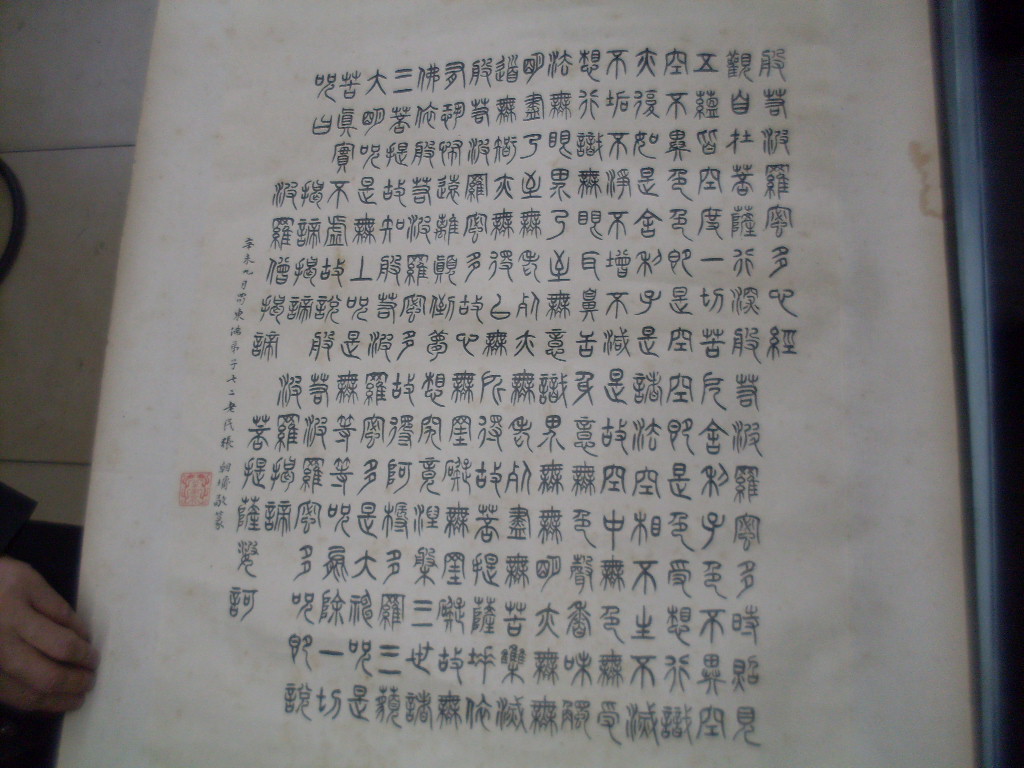 般若波羅蜜多心經
觀自在菩薩行深般若波羅蜜多時照見
五蘊皆空度一切苦厄舍利子色不異空
空不異色色即是空空即是色受想行識
亦復如是舍利子是諸法空相不生不滅
不垢不淨不增不減是故空中無色無受
想行識無眼耳鼻舌身意無色聲香味觸
法無眼界乃至無意識界無無明亦無無
明盡乃至無老死亦無老死盡無苦集滅
道無智亦無得以無所得故菩提薩埵依
般若波羅蜜多故心無罣礙無罣礙故無
有恐怖遠離顛倒夢想究竟涅槃三世諸
佛依般若波羅蜜多故得阿耨多羅三藐
三菩提故知般若波羅蜜多是大神咒是
大明咒是無上咒是無等等咒能除一切
苦真實不虛故說般若波羅蜜多咒即說
咒曰揭諦揭諦波羅揭諦
波羅僧揭諦菩提薩婆訶
辛未九月蜀東佛弟子七二老民張朝墉敬篆